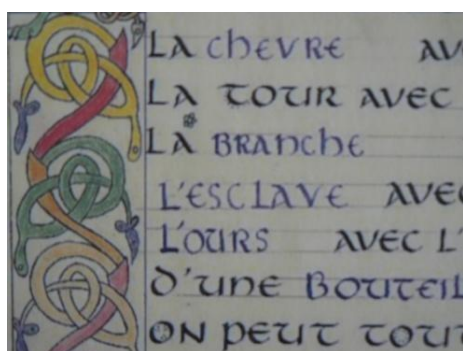 LA CHEVRE AV
LA TOUR AVEC
LA BRANCHE
L'ESCLAVE AVEC
L'OURS AVEC L'
D'UNE BOUTEIL
ON PEUT TOUT